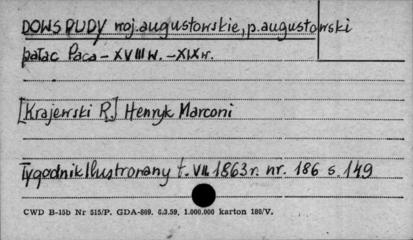 DOWSPUDY woj.augustowskie, p.augustowski
pałac Paca - XVIII w. - XIX w.
[Krajewski R.] Henryk Marconi
Tygodnik Ilustrowany t. VII 1863 r. nr. 186 s. 149
CWD B-15b Nr 515/P. GDA-869. 6.3.59. 1.000.000 karton 180/V.